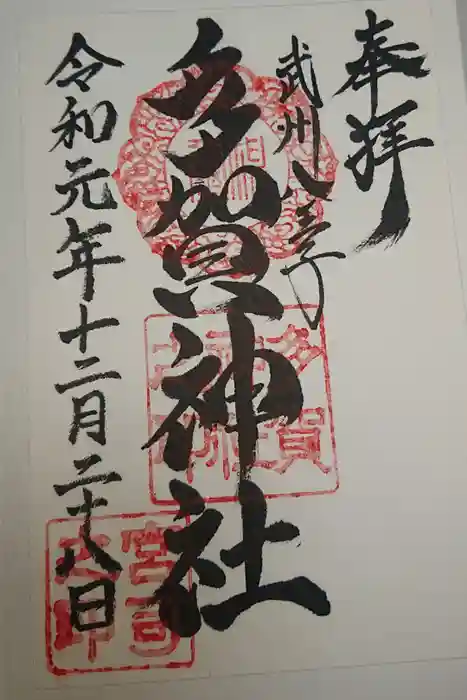 奉拝
武州八王子
多賀神社
令和元年十二月二十八日
多賀神社
宮司之印